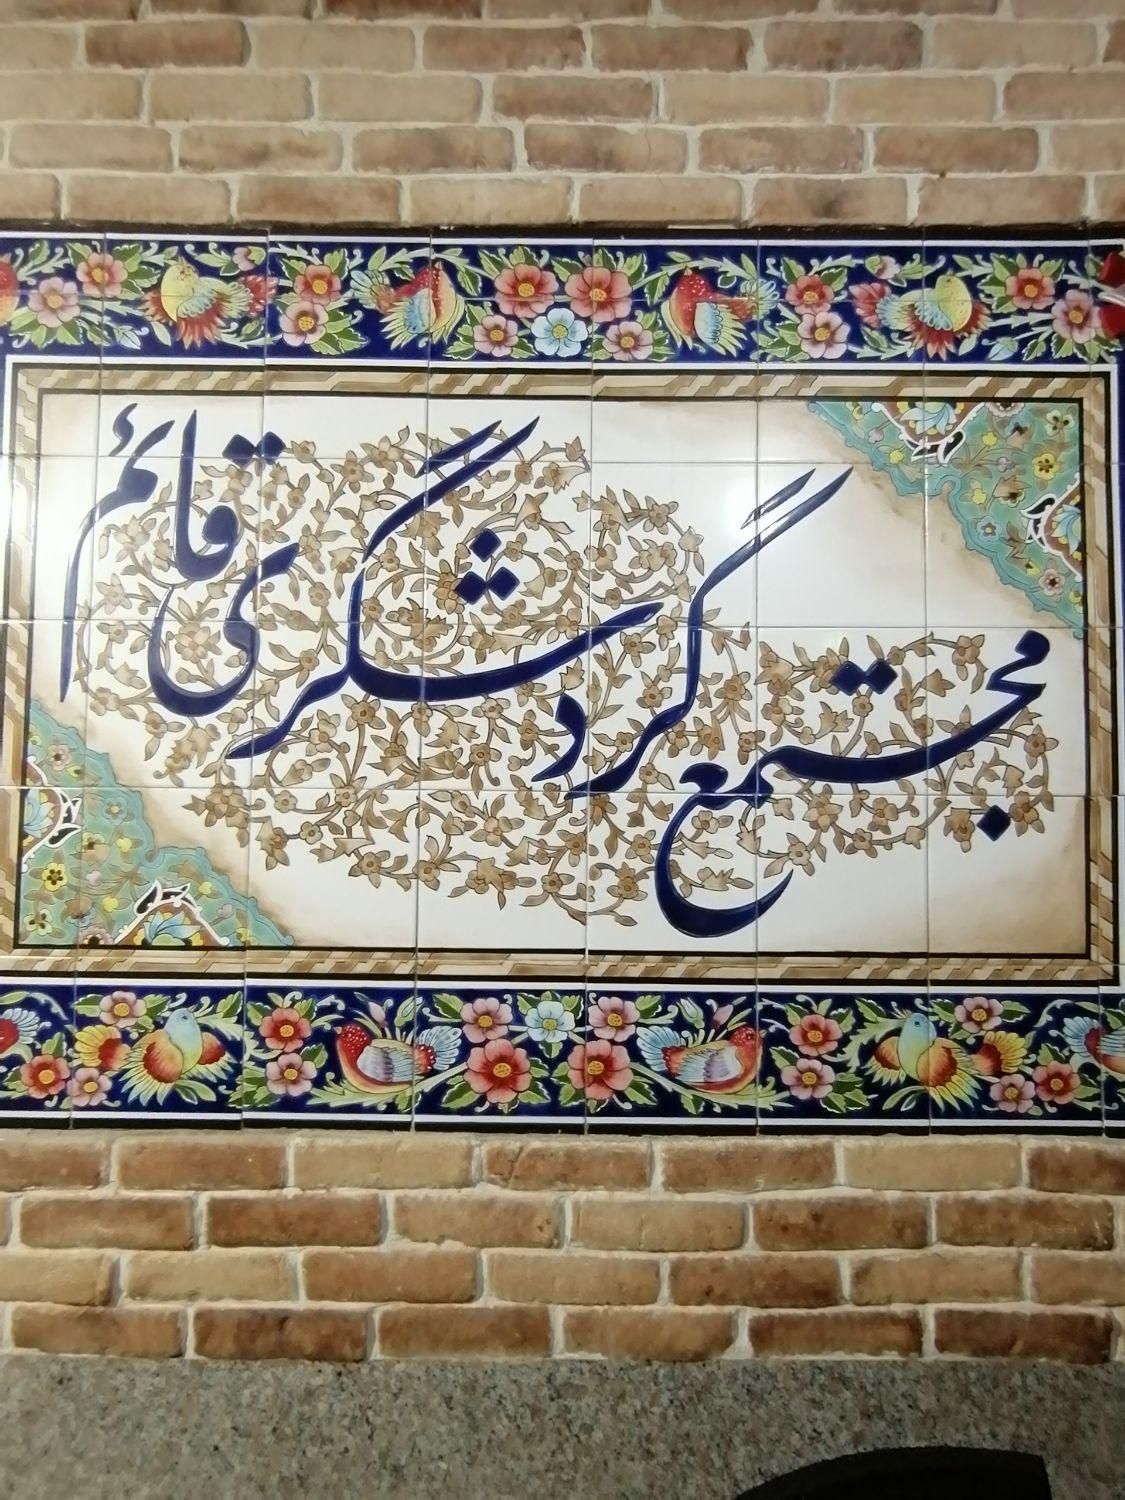 مجتمع گردشگری قائم